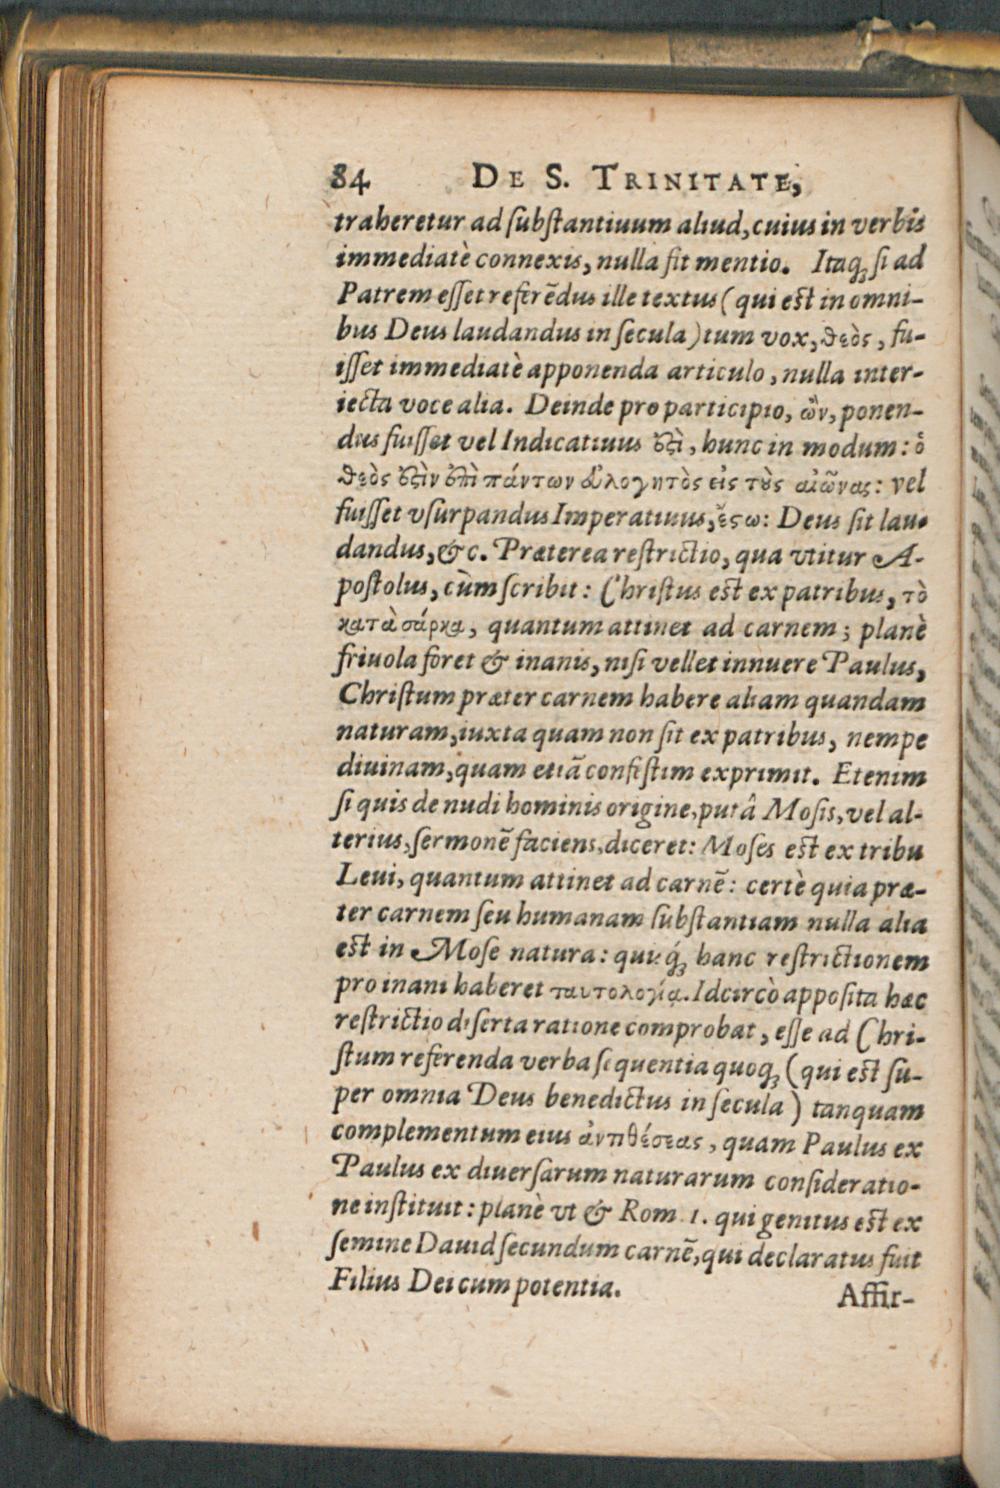 84 DE S. TRINITATE,
traheretur ad ſubſtantiuum aliud, cuius in verbis
immediatè connexis, nulla fit mentio. Itaq́; ſi ad
Patrem eſſet referẽdus ille textus (qui eſt in omni-
bus Deus laudandus in ſecula) tum vox, θεὸς, fu-
iſſet immediatè apponenda articulo, nulla inter-
iecta voce alia. Deinde pro participio, ὢν, ponen-
dus fuiſſet vel Indicatiuus ἐϛὶ, hunc in modum: ὁ
θεὸς ἐϛὶν ἐπὶ πάντων εὐλογητὸς εἰς τοὺς αἰῶνας: vel
fuiſſet vſurpandus Imperatiuus, ἔϛω: Deus ſit lau-
dandus, &c. Præterea reſtrictio, qua vtitur A-
poſtolus, cùm ſcribit: Chriſtus eſt ex patribus, τὸ
κατὰ σάρκα, quantum attinet ad carnem; planè
friuola foret & inanis, niſi vellet innuere Paulus,
Chriſtum præter carnem habere aliam quandam
naturam, iuxta quam non ſit ex patribus, nempe
diuinam, quam etiã confeſtim exprimit. Etenim
ſi quis de nudi hominis origine, putâ Moſis, vel al-
terius, ſermonẽ faciens, diceret: Moſes eſt ex tribu
Leui, quantum attinet ad carnẽ: certè quia præ-
ter carnem ſeu humanam ſubſtantiam nulla alia
eſt in Moſe natura: quiuq́; hanc reſtrictionem
pro inani haberet ταυτολογίᾳ. Idcircò appoſita hæc
reſtrictio diſerta ratione comprobat, eſſe ad Chri-
ſtum referenda verba ſequentia quoq; (qui eſt ſu-
per omnia Deus benedictus in ſecula) tanquam
complementum eius ἀντιθέσεως, quam Paulus ex
Paulus ex diuerſarum naturarum conſideratio-
ne inſtituit: planè vt & Rom. 1. qui genitus eſt ex
ſemine Dauid ſecundum carnẽ, qui declaratus fuit
Filius Dei cum potentia.
Affir-